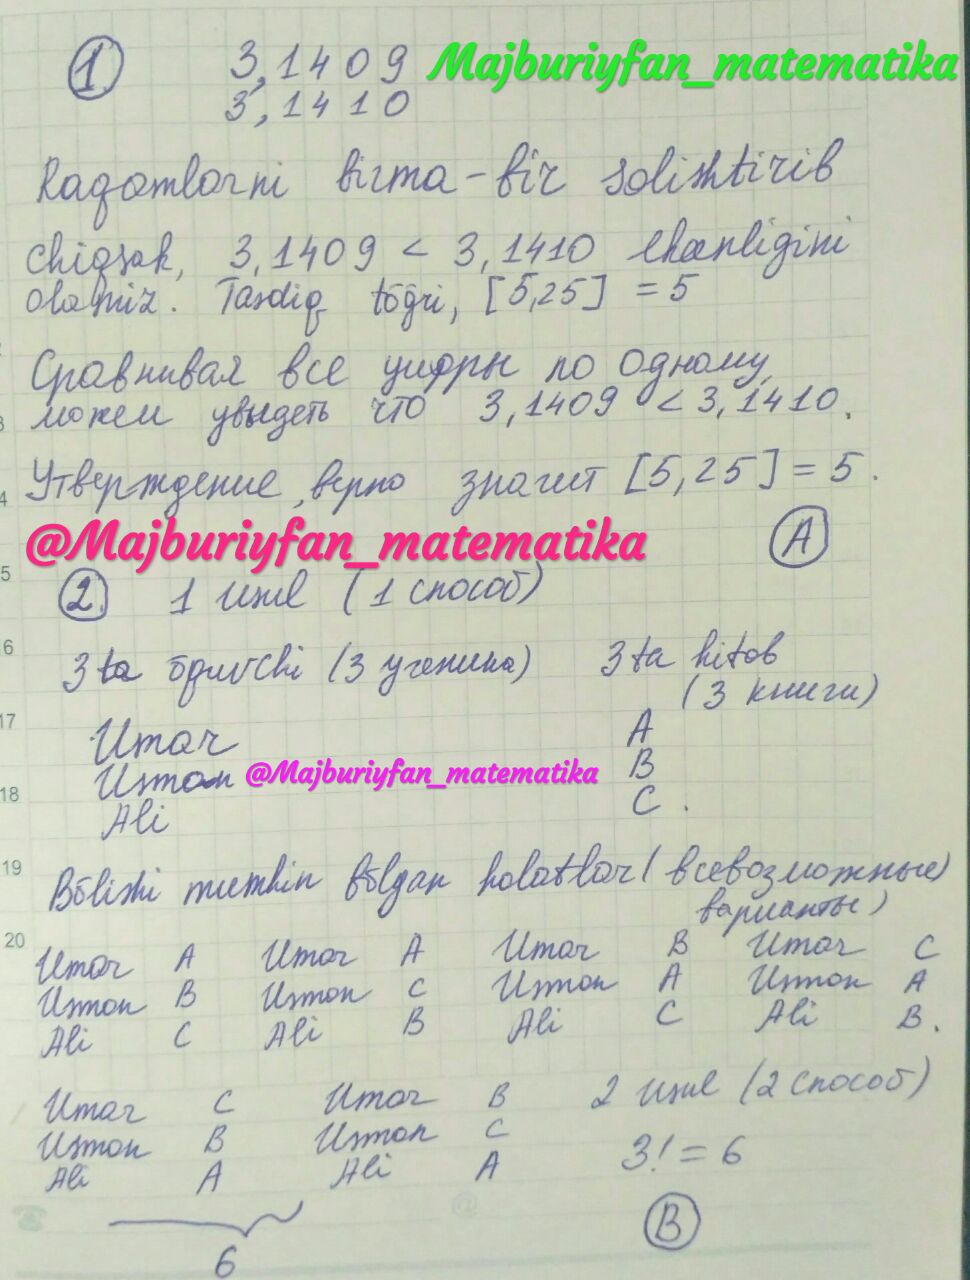 1 3,1409 Majburiyfan_matematika
3,1410
Raqamlarni birma-bir solishtirib
chiqsak, 3,1409 < 3,1410 ekanligini
olamiz. Tasdiq tõg̃ri, [5,25] = 5
Сравнивая все цифры по одному,
можем увыдеть что 3,1409 < 3,1410.
Утверждение, верно значит [5,25] = 5.
@Majburiyfan_matematika A
2. 1 usul (1 способ)
3 ta õquvchi (3 ученика) 3 ta kitob
(3 книги)
Umar A
Usmon @Majburiyfan_matematika B
Ali C.
Bõlishi mumkin bõlgan holatlar (всевозможные
варианты)
Umar A Umar A Umar B Umar C
Usmon B Usmon C Usmon A Usmon A
Ali C Ali B Ali C Ali B.
Umar C Umar B 2 usul (2 способ)
Usmon B Usmon C 3! = 6
Ali A Ali A
6 B
4
5
16
17
18
19
20